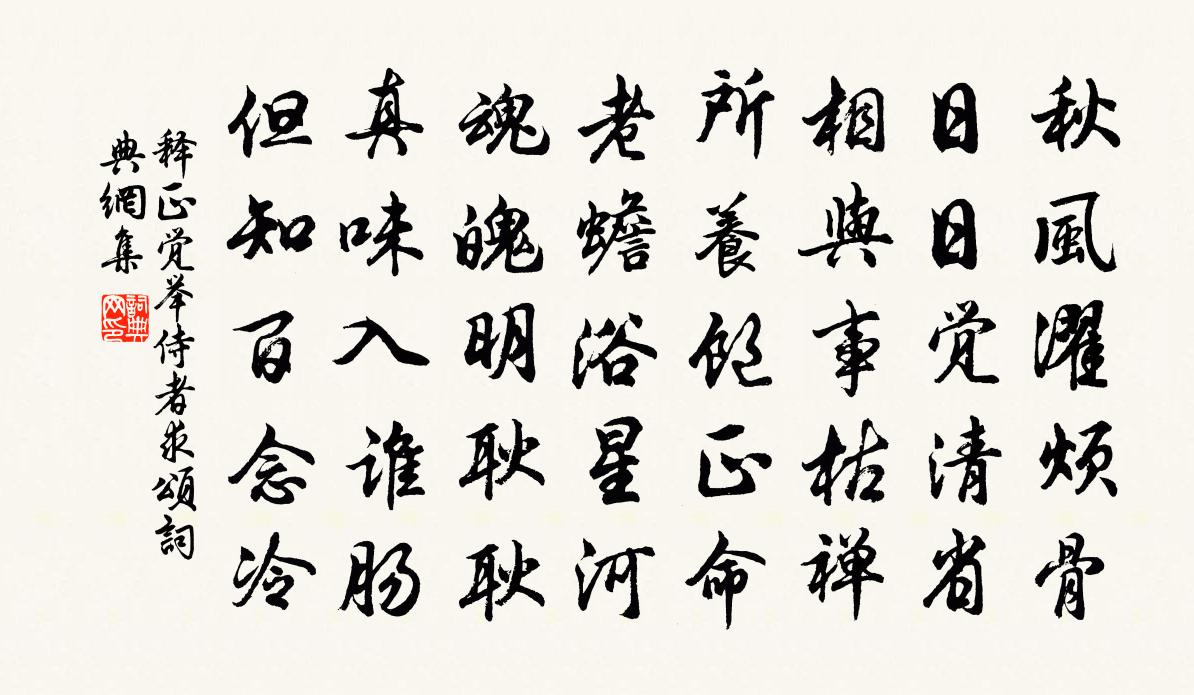 秋風濯煩骨
日日觉清省
相與事枯禅
所養飽正命
老蟾浴星河
魂魄明耿耿
真味入誰肠
但知百念冷
释正觉举侍者求頌詞
典網集
詞典
网印